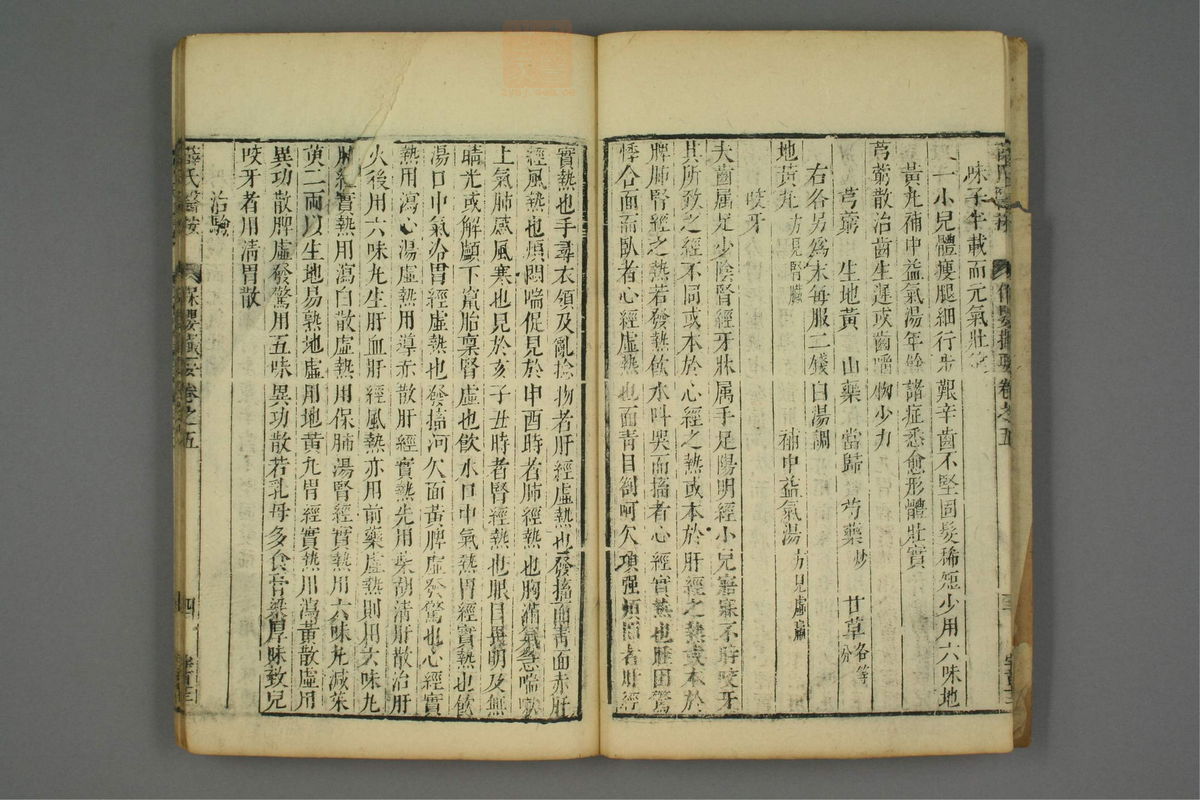 味子半載而元氣壯
一小兒體瘦腿細行步艱辛齒不堅固髮稀短少用六味地
黃丸補中益氣湯年餘諸症悉愈形體壯實
芎藭散治齒生遲或齒嚼物少力
芎藭 生地黃 山藥 當歸 芍藥炒 甘草各等分
右各另爲末每服二錢白湯調
地黃丸方見腎臟 補中益氣湯方見虛羸
咬牙
夫齒屬足少陰腎經牙牀屬手足陽明經小兒寤寐不時咬牙
其所致之經不同或本於心經之熱或本於肝經之熱或本於
脾肺腎經之熱若發熱飲水叫哭而搐者心經實熱也睡困驚
悸合面而臥者心經虛熱也面青目劄呵欠項强煩悶者肝經
實熱也手尋衣領及亂捻物者肝經虛熱也發搐面青面赤肝
經風熱也煩悶喘促見於申酉時者肺經熱也胸滿氣急喘嗽
上氣肺感風寒也見於亥子丑時者腎經熱也眼目畏明及無
睛光或解顱下竄胎稟腎虛也飲水口中氣熱胃經實熱也飲
湯口中氣冷胃經虛熱也發搐呵欠面黃脾虛發驚也心經實
熱用瀉心湯虛熱用導赤散肝經實熱先用柴胡清肝散治肝
火後用六味丸生肝血肝經風熱亦用前藥虛熱則用六味丸
肺經實熱用瀉白散虛熱用保肺湯腎經實熱用六味丸減茱
萸二兩以生地易熟地虛用地黃丸胃經實熱用瀉黃散虛用
異功散脾虛發驚用五味異功散若乳母多食膏粱厚味致兒
咬牙者用清胃散
治驗
薛氏醫按 保嬰撮要卷之五 四